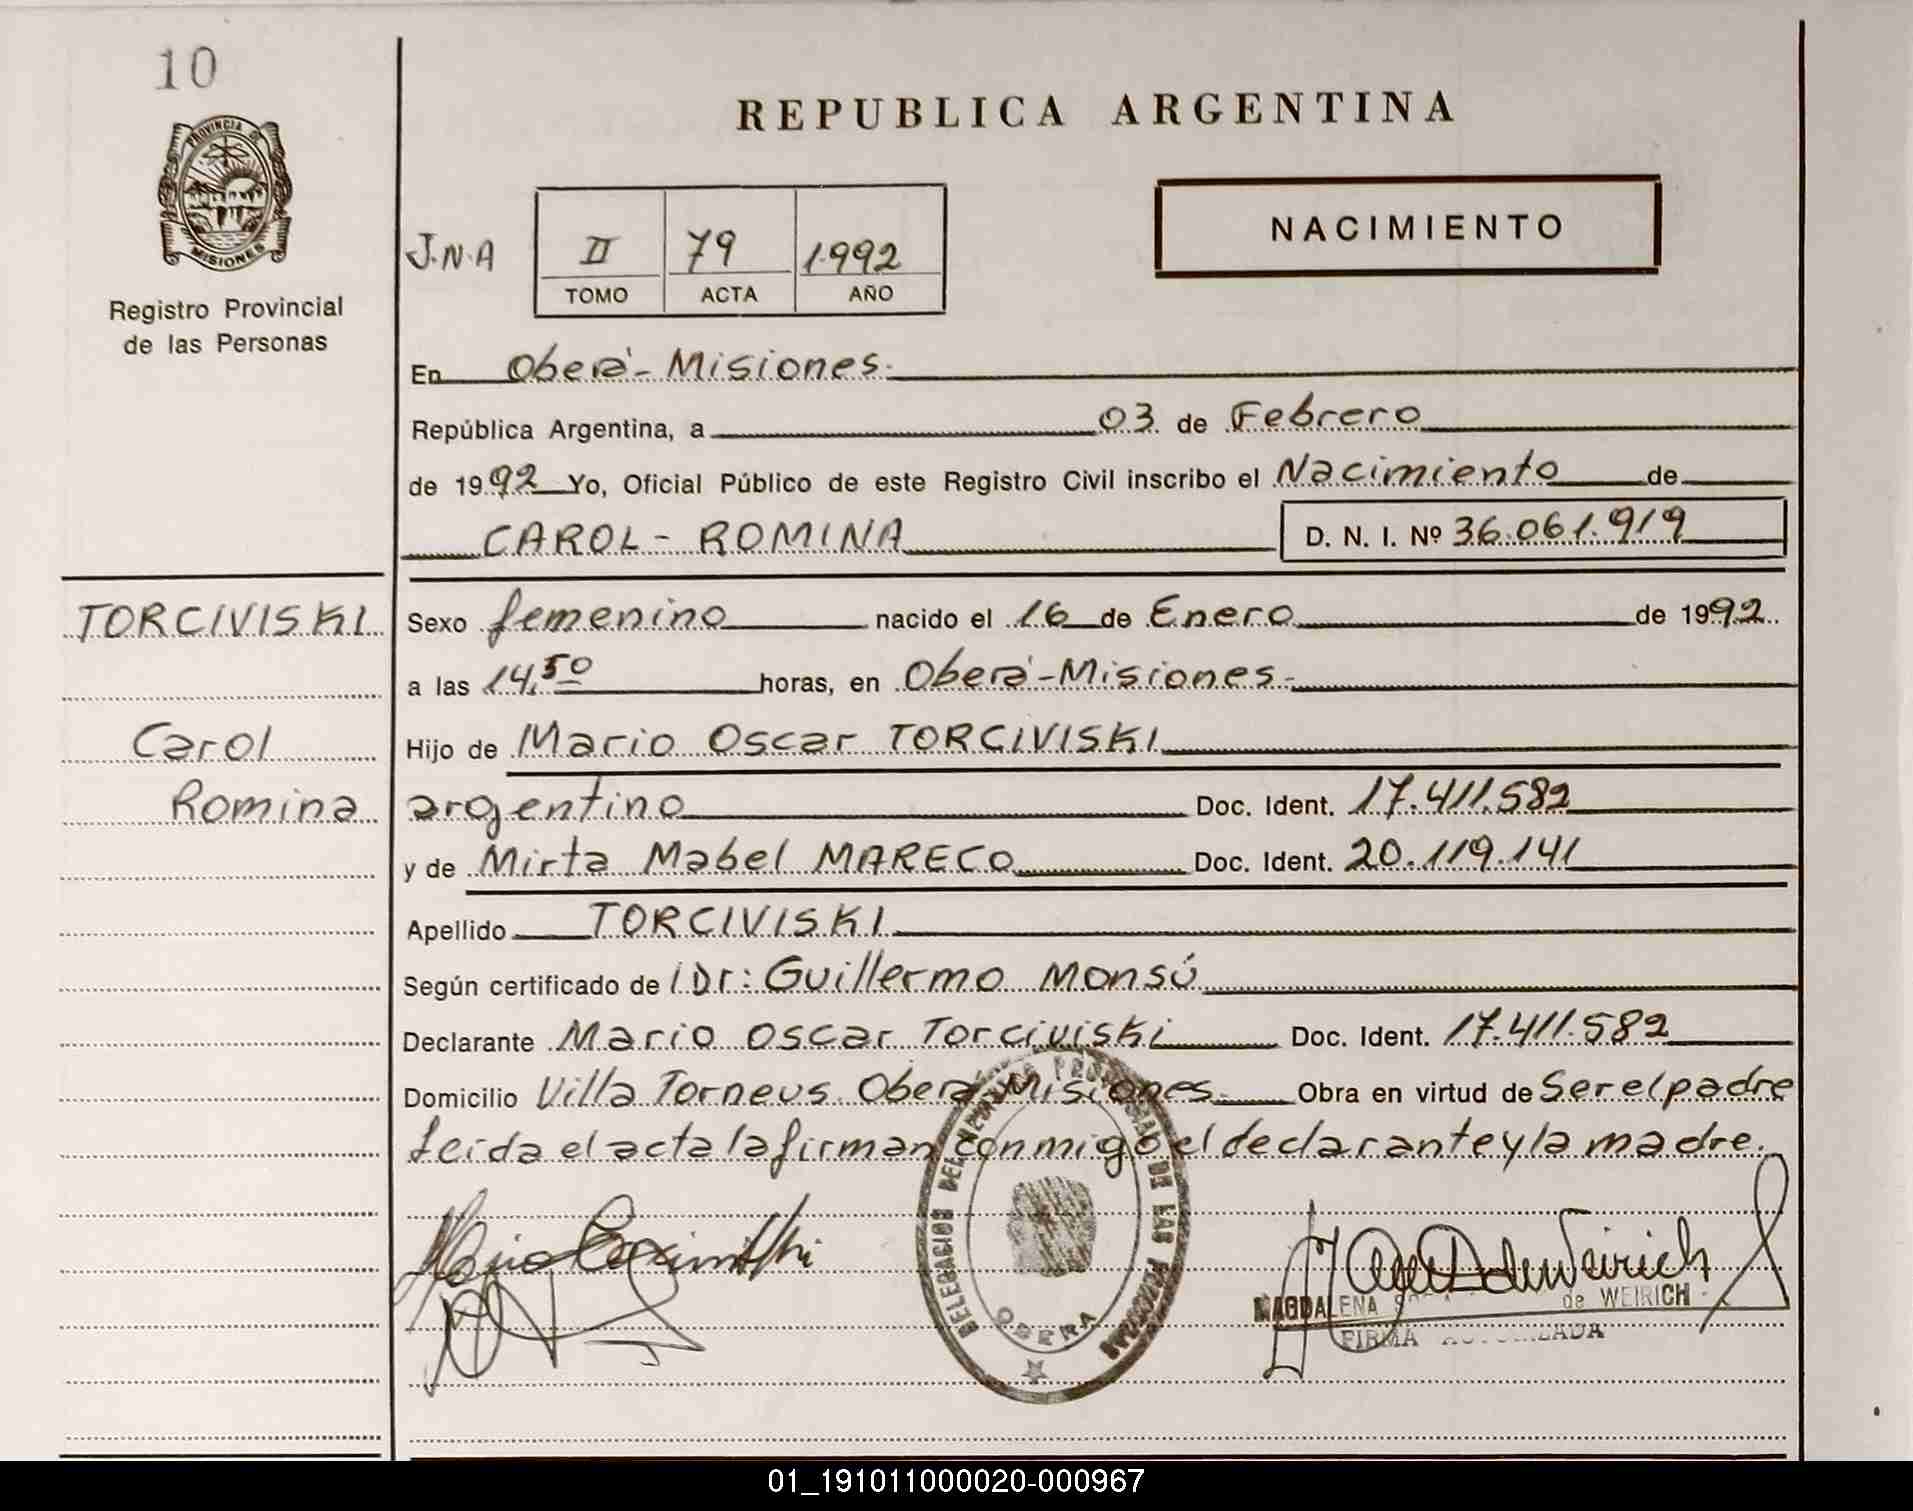 10
PROVINCIA DE
MISIONES
Registro Provincial
de las Personas
REPUBLICA ARGENTINA
NACIMIENTO
J.N.A II 79 1992
TOMO ACTA AÑO
En Oberá - Misiones.
República Argentina, a 03 de Febrero
de 1992 Yo, Oficial Público de este Registro Civil inscribo el Nacimiento de
CAROL - ROMINA D. N. I. Nº 36.061.919
TORCIVISKI
Carol
Romina
Sexo femenino nacido el 16 de Enero de 1992
a las 14,50 horas, en Oberá - Misiones.
Hijo de Mario Oscar TORCIVISKI
argentino Doc. Ident. 17.411.582
y de Mirta Mabel MARECO Doc. Ident. 20.119.141
Apellido TORCIVISKI
Según certificado de Dr: Guillermo Monsú
Declarante Mario Oscar Torciviski Doc. Ident. 17.411.582
Domicilio Villa Torneus Oberá Misiones. Obra en virtud de Ser el padre
Leida el acta la firman conmigo el declarante y la madre.
DELEGACION DEL DE LAS
OBERA
MAGDALENA de WEIRICH
FIRMA AUTORIZADA
01_191011000020-000967